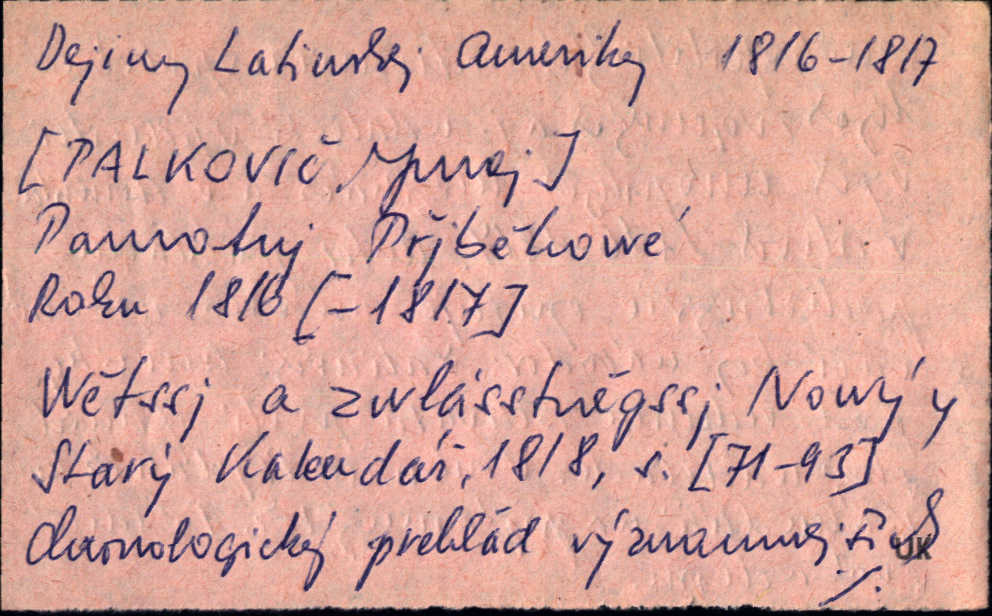 Dejiny Latinskej Ameriky 1816-1817
[PALKOVIČ, Juraj]
Pamotnj Přjběhowé
Roku 1816 [-1817]
Wětssj a zwlásstněgssj Nowý y
Starý Kalendář, 1818, s. [71-93]
chronologický prehlád významnejší
UK